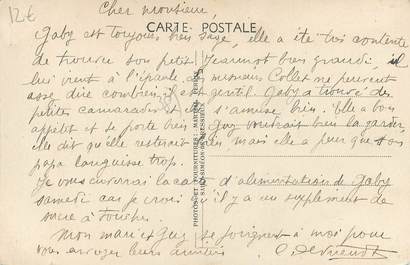 12€
Cher monsieur,
CARTE POSTALE
Gaby est toujours bien sage, elle a été très contente
de trouver son petit Jeannot bien grandi, il
lui vient à l'épaule, ses mesnieurs Collet ne peuvent
assez dire combien il est gentil. Gaby a trouvé des
petites camarades et s'amuse bien. Elle a bon
appétit et se porte bien Guy voudrait bien la garder,
elle dit qu'elle resterait bien, mais elle a peur que son
papa languisse trop.
Je vous enverrai la carte d'alimentation de Gaby
samedi car je crois qu'il y a un supplément de
sucre à toucher.
Mon mari et Guy se joignent à moi pour
vous envoyer leurs amitiés
PHOTOS ET FOURNITURES MARTIN
SAINT-SIMÉON-DE-BRESSIEUX